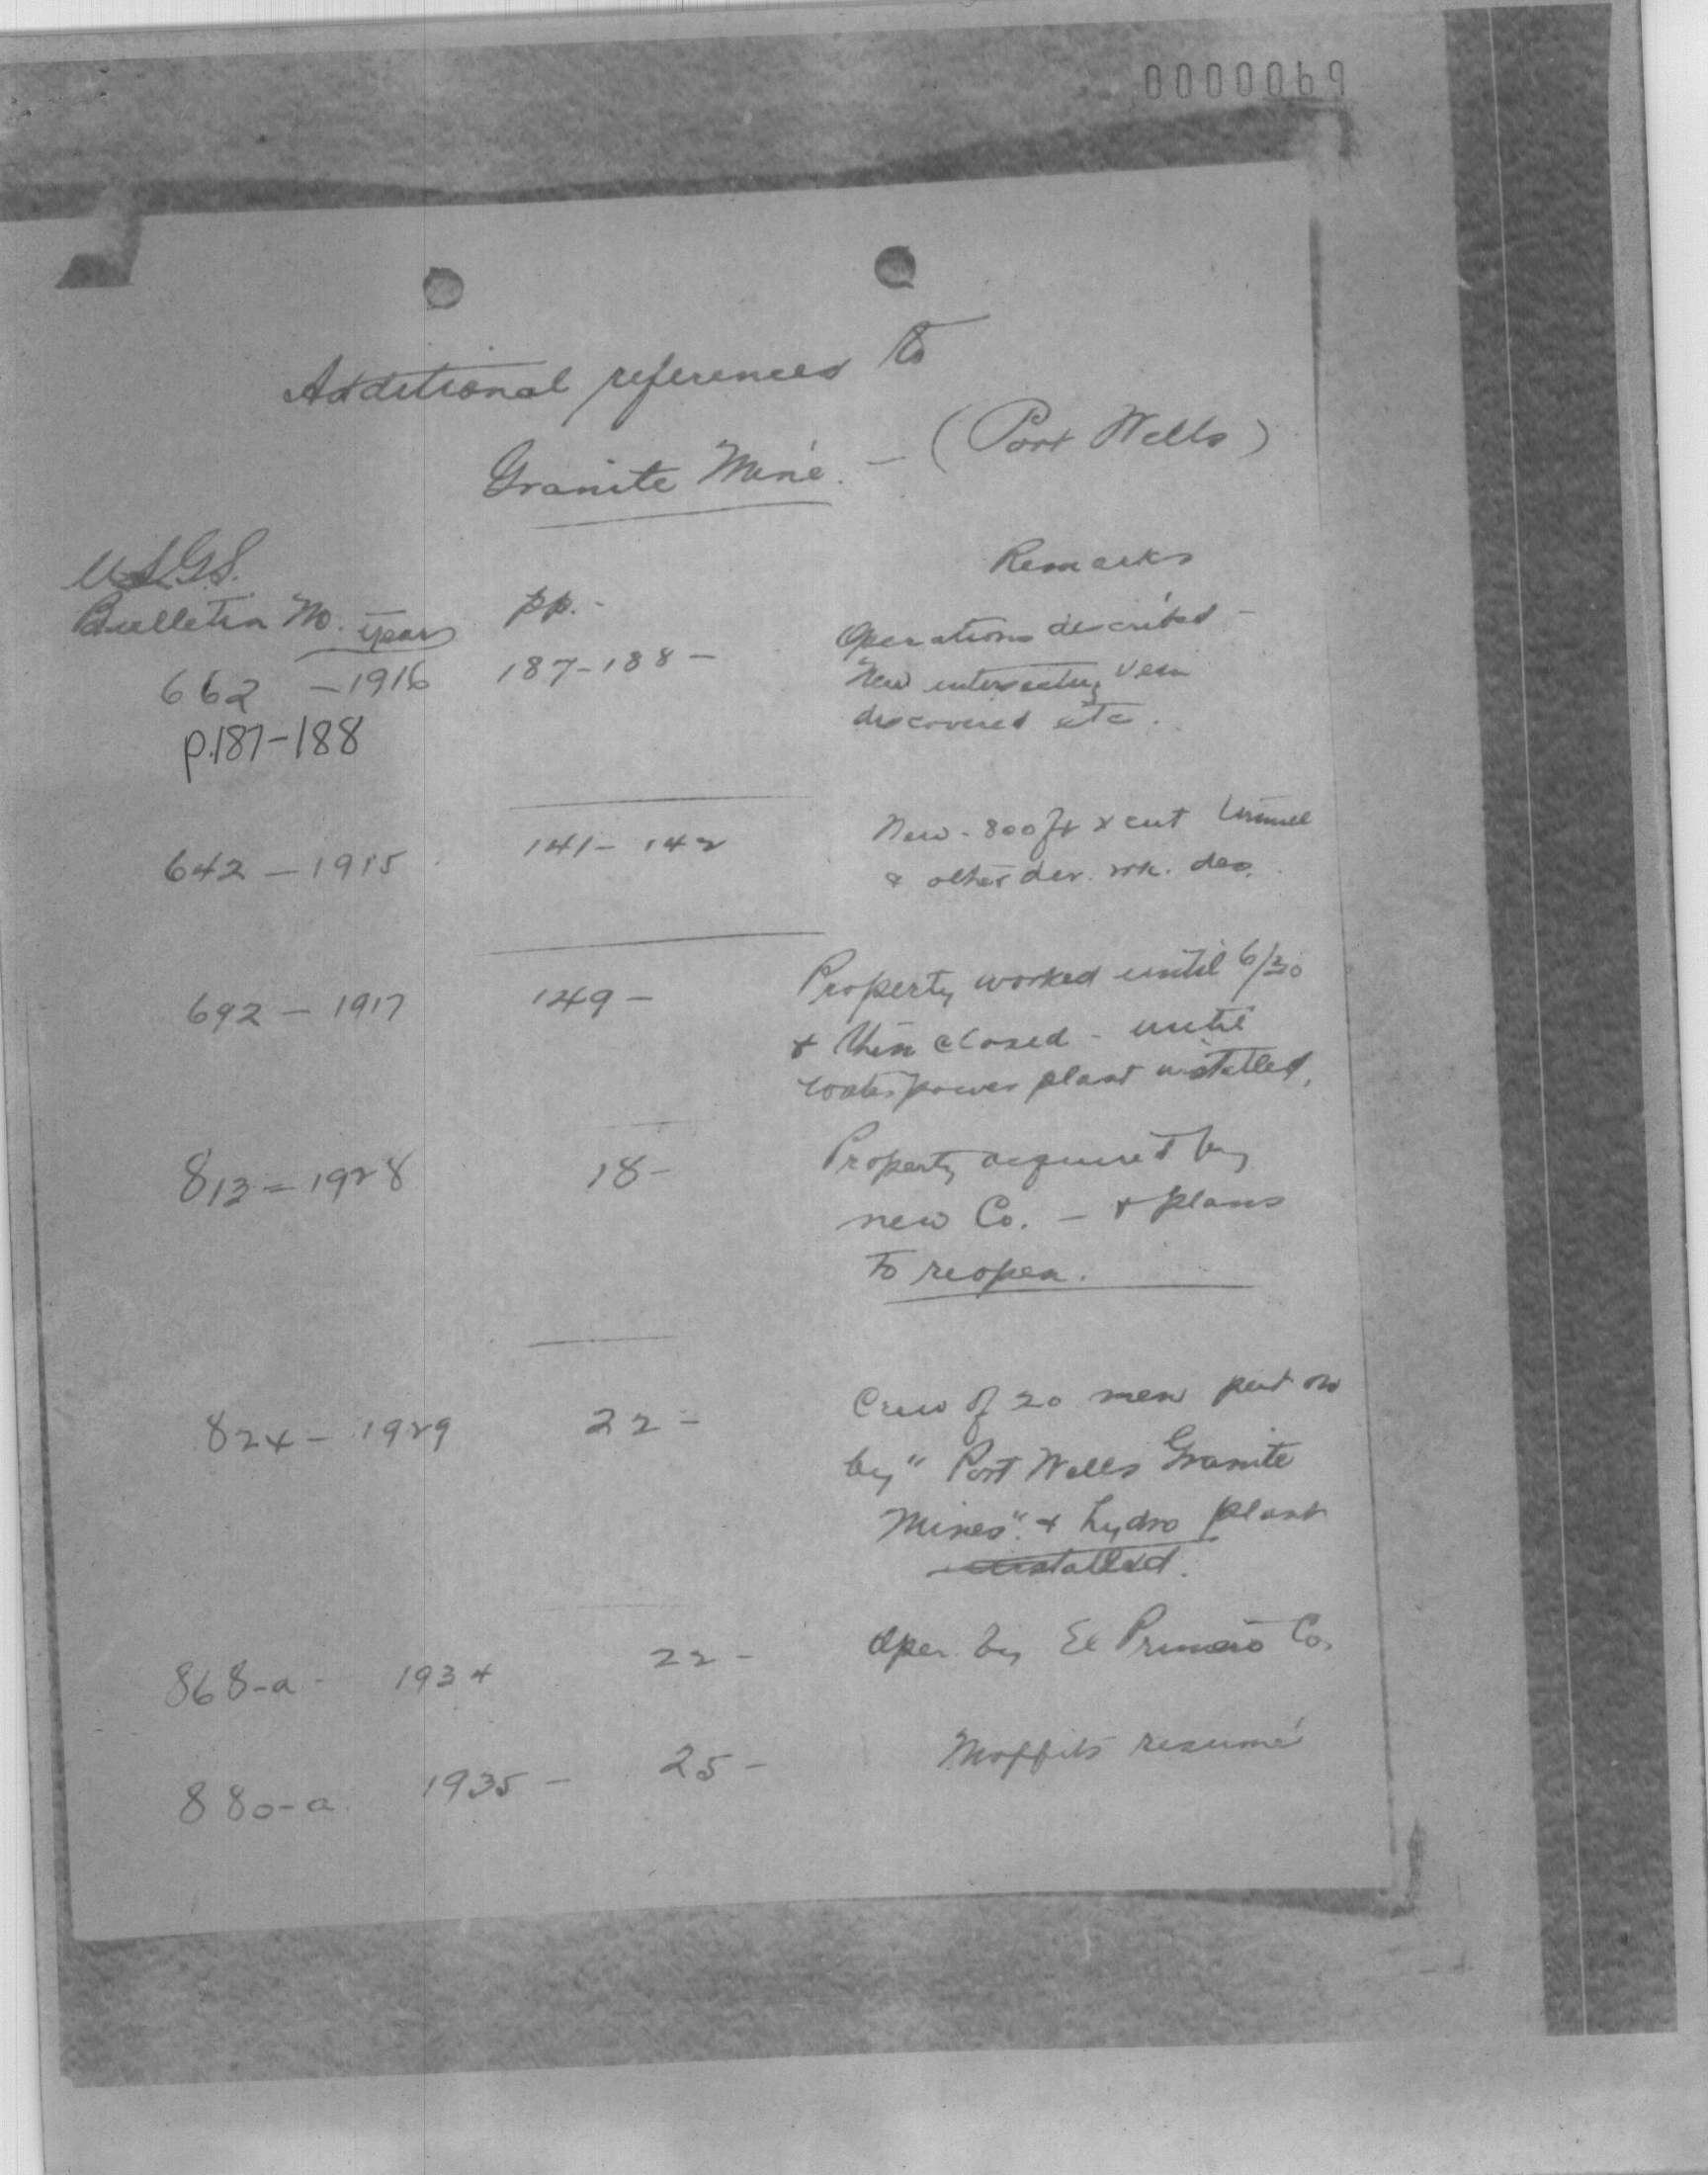 0000069
Additional references to
Granite Mine. - (Port Wells)
U.S.G.S.
Bulletin No. years pp. - Remarks
662 - 1916 187-188 - Operations described -
New intersecting vein
p.187-188 discovered etc.
642 - 1915 141-142 New - 800 ft x cut tunnel
& other dev. wk. des.
692 - 1917 149 - Property worked until
& then closed - until
water power plant installed.
813 - 1928 18 - Property acquired by
new Co. - & plans
to reopen.
824 - 1929 22 - Crew of 20 men put on
by "Port Wells Granite
Mines". & hydro plant
installed.
868-a - 1934 22 - Oper. by El Primero Co.
880-a 1935 - 25 - Moffits resumé